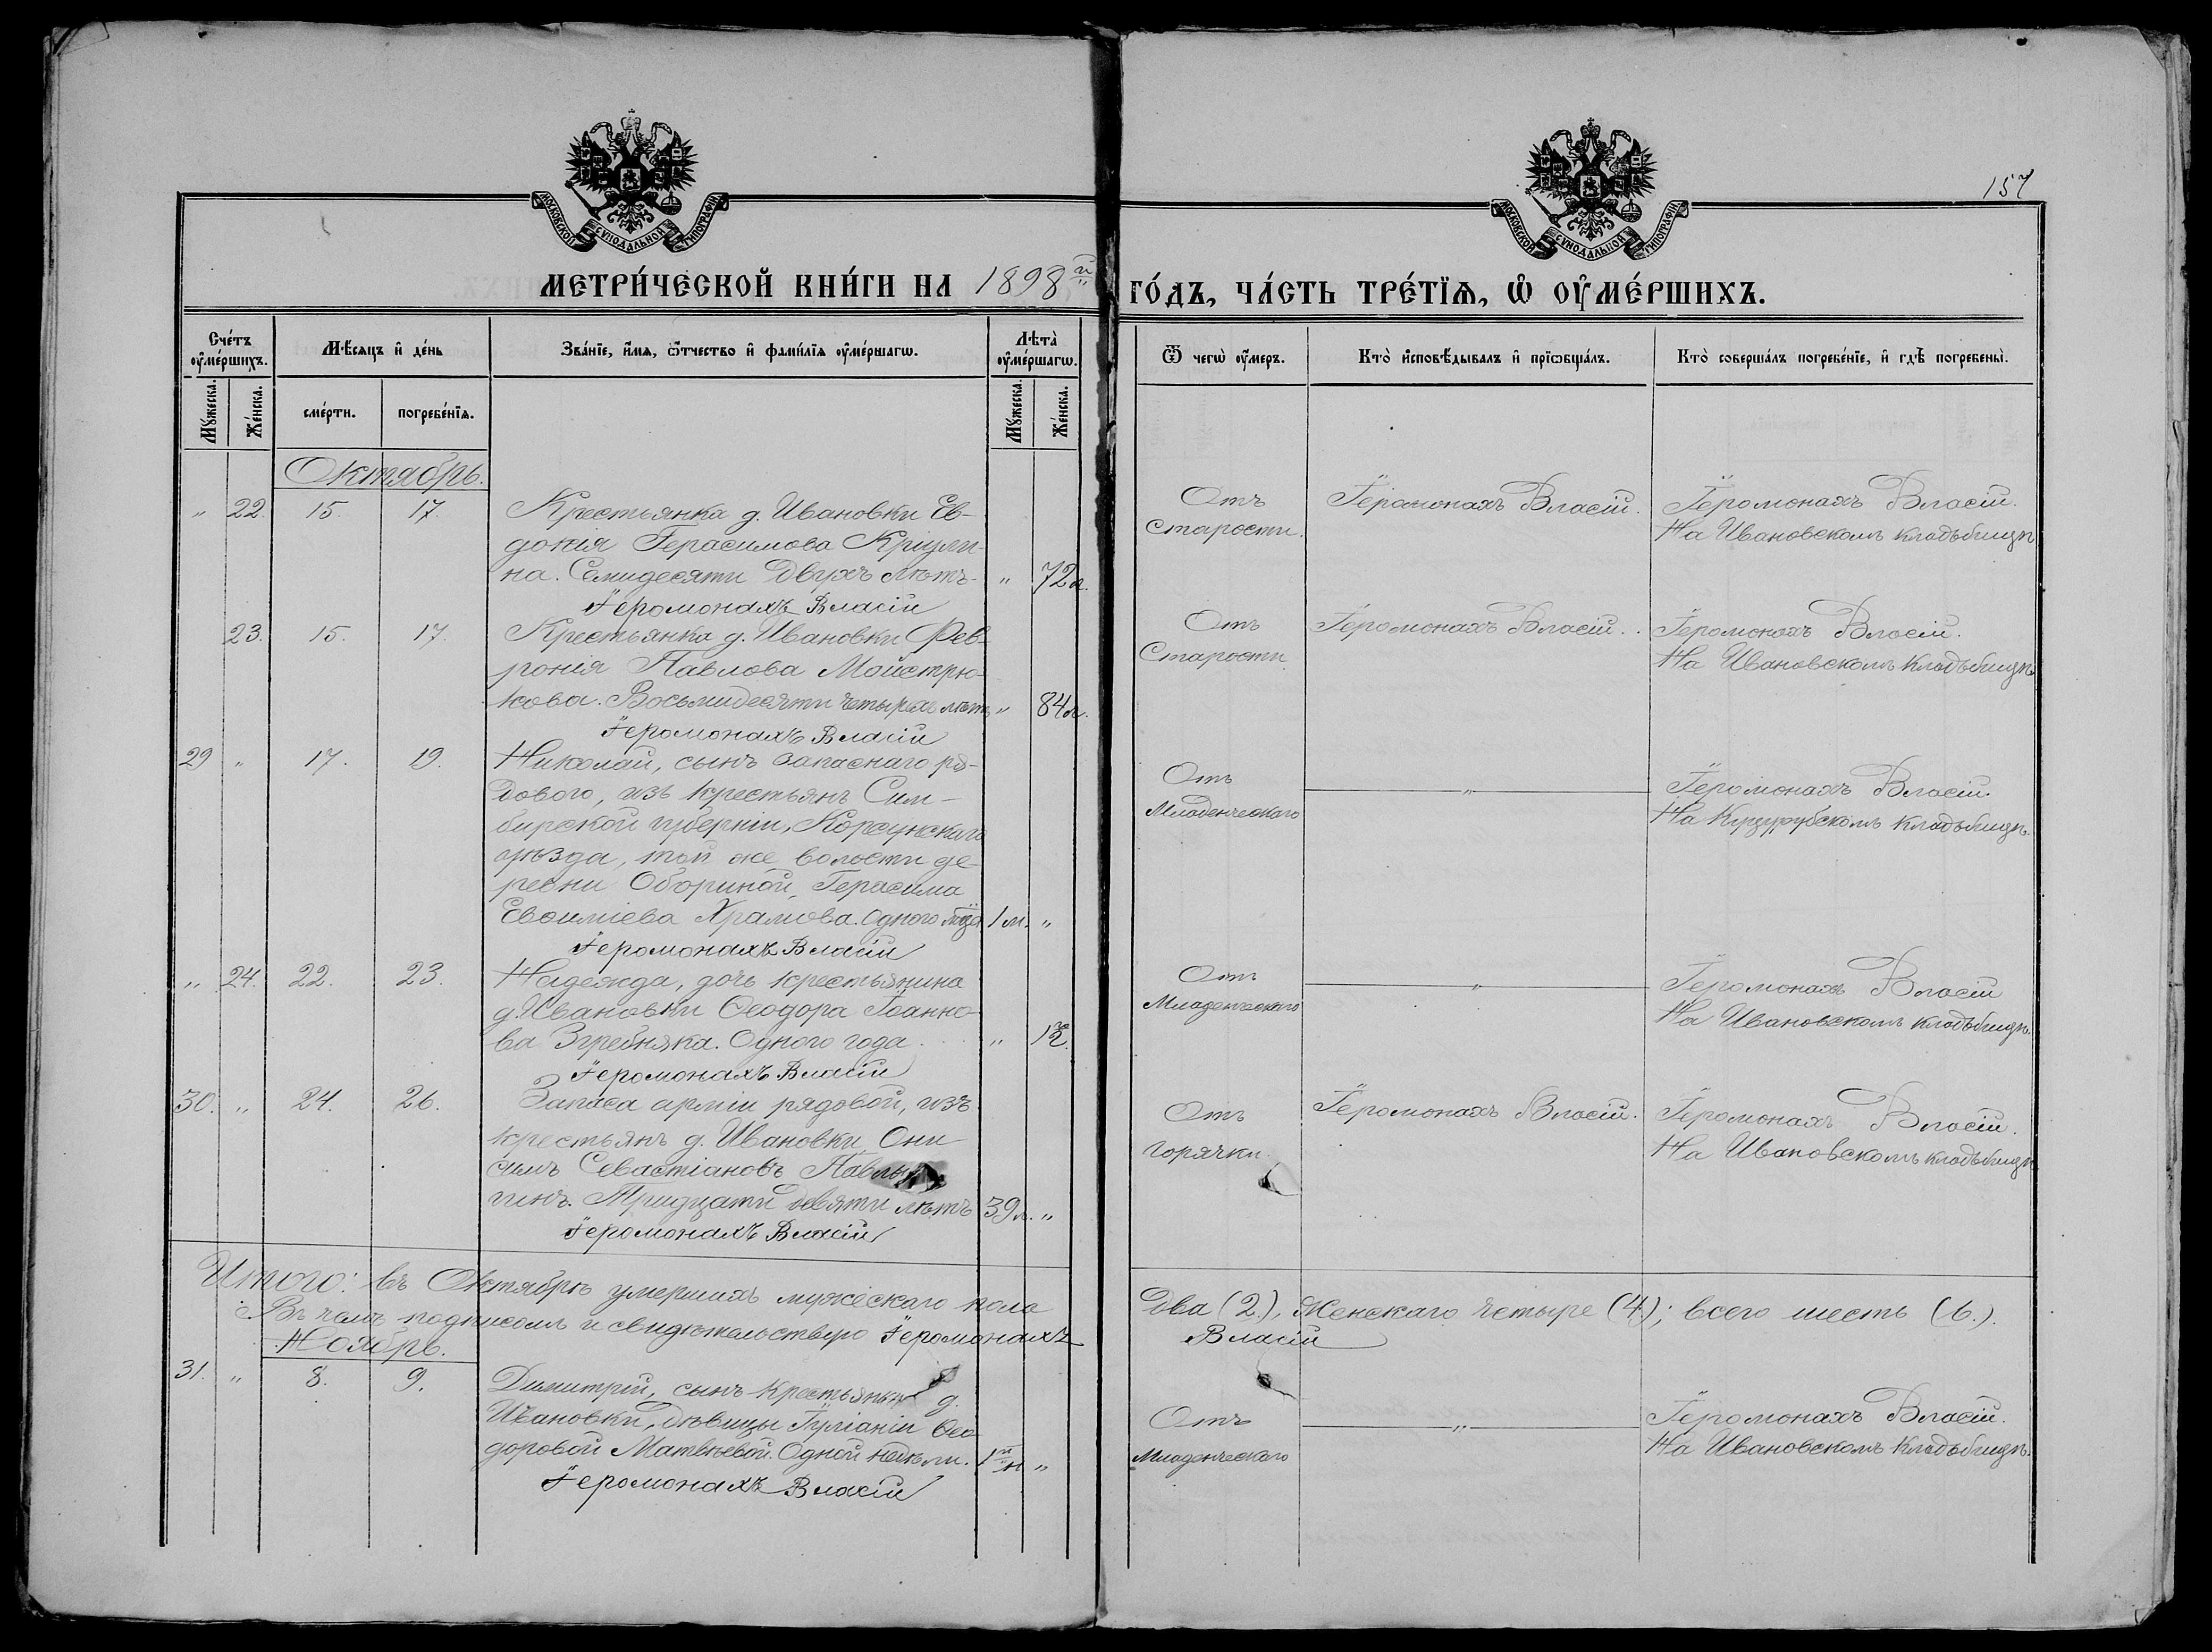 157
МОСКОВСКОЙ СУНОДАЛЬНОЙ ТИПОГРАФІИ
МОСКОВСКОЙ СУНОДАЛЬНОЙ ТИПОГРАФІИ
МЕТРИ́ЧЕСКОЙ КНИ́ГИ НА 1898й ГО́ДЪ, ЧА́СТЬ ТРЕ́ТЇѦ, Ѡ҆ ОУ҆МЕ́РШИХЪ.
Сче́тъ оу҆ме́ршихъ.
Мѣ́сѧцъ и҆ де́нь
Зва́нїе, и҆́мѧ, ѻ҆́тчество и҆ фамѝлїѧ оу҆ме́ршагѡ.
Лѣта̀ оу҆ме́ршагѡ.
Ѿ чегѡ̀ оу҆́меръ.
Кто̀ и҆сповѣ́дывалъ и҆ прїѡбща́лъ.
Кто̀ соверша́лъ погребе́нїе, и҆ гдѣ̀ погребены̀.
Мꙋ́жеска.
Же́нска.
сме́рти.
погребе́нїѧ.
Мꙋ́жеска.
Же́нска.
Октябрь.
" 22. 15. 17. Крестьянка д. Ивановки Ев-
докия Герасимова Кріули-
на. Семидесяти двухъ лѣтъ. " 72 л.
Іеромонахъ Власій
Отъ
Старости.
Іеромонахъ Власій.
Іеромонахъ Власій.
На Ивановскомъ кладъбищѣ
23. 15. 17. Крестьянка д. Ивановки Фев-
ронія Павлова Майстрю-
кова. Восьмидесяти четырехъ лѣтъ " 84 л.
Іеромонахъ Власій
Отъ
Старости.
Іеромонахъ Власій.
Іеромонахъ Власій.
На Ивановскомъ кладъбищѣ.
29 " 17. 19. Николай, сынъ запаснаго ря-
дового, изъ крестьянъ Сим-
бирской губерніи, Корсунскаго
уѣзда, той же волости де-
ревни Обориной, Герасима
Евѳиміева Храмова. Одного м-ца 1 м. "
Іеромонахъ Власій
Отъ
Младенческаго
"
Іеромонахъ Власій.
На кладъбищѣ.
" 24. 22. 23. Надежда, дочь крестьянина
д. Ивановки Ѳеодора Іоанно-
ва Згребняка. Одного года. " 1 г.
Іеромонахъ Власій
Отъ
Младенческаго
"
Іеромонахъ Власій
На Ивановскомъ кладъбищѣ.
30. " 24. 26. Запаса арміи рядовой, изъ
крестьянъ д. Ивановки, Они
симъ Севастіановъ
Тридцати девяти лѣтъ 39 л. "
Іеромонахъ Власій
Отъ
горячки.
Іеромонахъ Власій.
Іеромонахъ Власій.
На Ивановскомъ кладъбищѣ
Итого: въ Октябрѣ умершихъ мужескаго пола Два (2), Женскаго четыре (4); всего шесть (6).
Въ чемъ подписомъ и свидѣтельствую Іеромонахъ Власій
Ноябрь.
31. " 8. 9. Димитрій, сынъ крестьянки д.
Ивановки, дѣвицы Іуліаніи Ѳео
доровой Матвѣевой. Одной недѣли. 1 н "
Іеромонахъ Власій
Отъ
Младенческаго
"
Іеромонахъ Власій.
На Ивановскомъ кладъбищѣ.